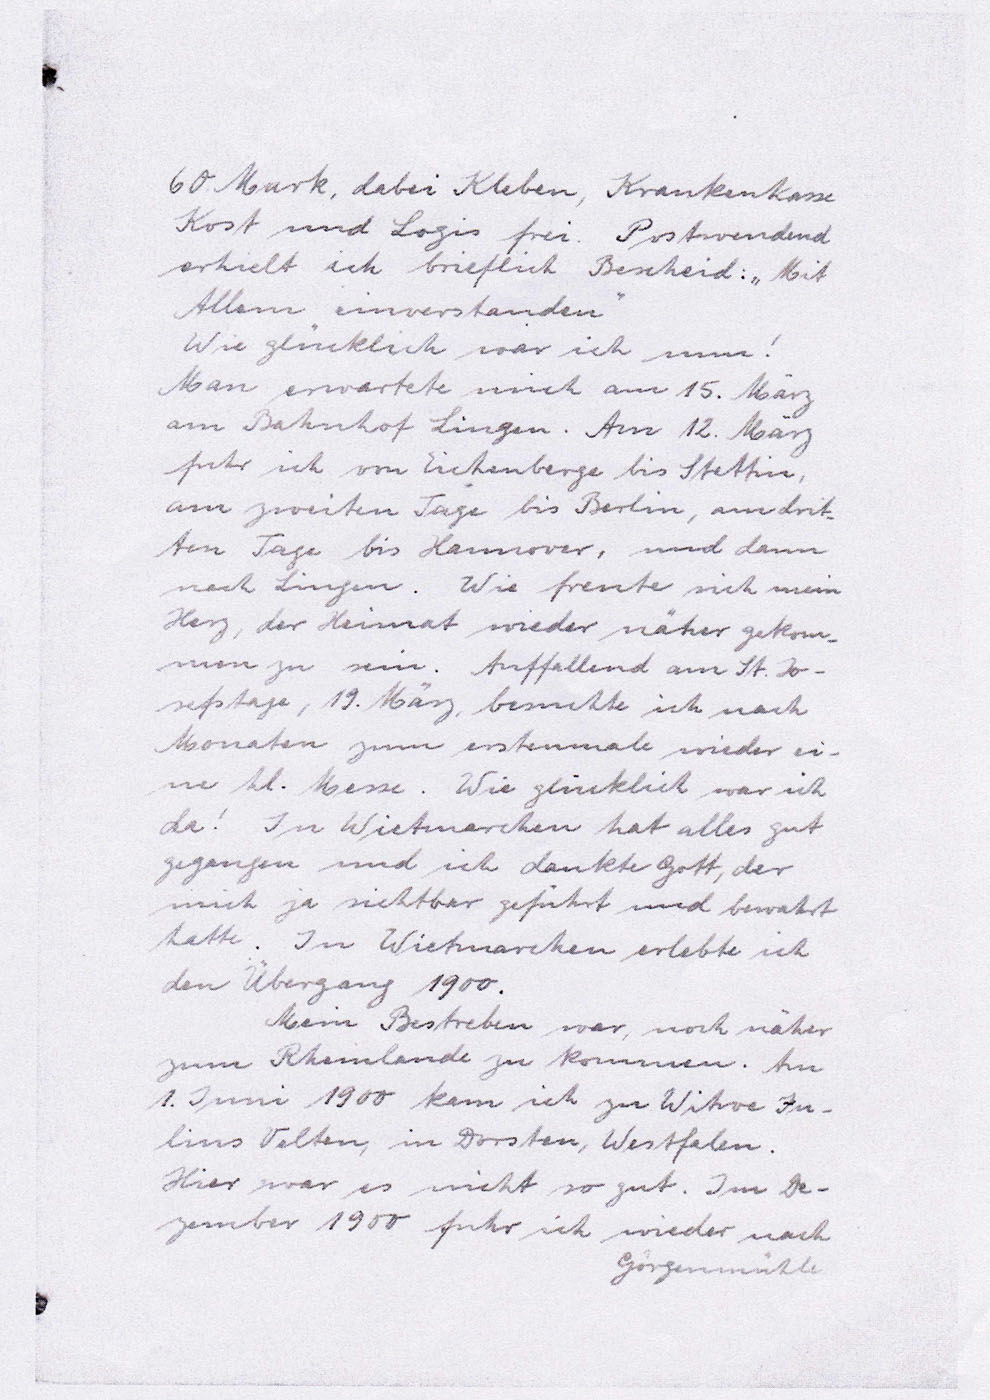 60 Mark, dabei Kleben, Krankenkasse
Kost und Logis frei. Postwendend
erhielt ich brieflich Bescheid: „Mit
Allem einverstanden"
Wie glücklich war ich nun!
Man erwartete mich am 15. März
am Bahnhof Lingen. Am 12. März
fuhr ich von Eichenberge bis Stettin,
am zweiten Tage bis Berlin, am drit-
ten Tage bis Hannover, und dann
nach Lingen. Wie freute sich mein
Herz, der Heimat wieder näher gekom-
men zu sein. Auffallend am St. Jo-
sefstage, 19. März, besuchte ich nach
Monaten zum erstenmale wieder ei-
ne hl. Messe. Wie glücklich war ich
da! In Wietmarchen hat alles gut
gegangen und ich dankte Gott, der
mich ja sichtbar geführt und bewahrt
hatte. In Wietmarchen erlebte ich
den Übergang 1900.
Mein Bestreben war, noch näher
zum Rheinlande zu kommen. Am
1. Juni 1900 kam ich zu Witwe Ju-
lius Velten, in Dorsten, Westfalen.
Hier war es nicht so gut. Im De-
zember 1900 fuhr ich wieder nach
Görgenmühle